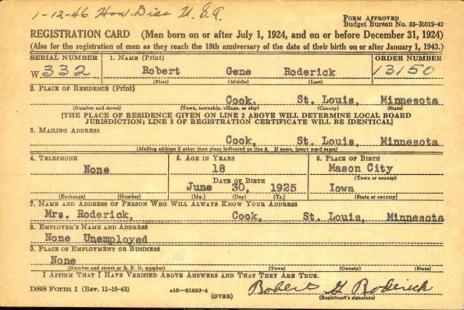 1-12-46 Hon Disc U.S.A.
FORM APPROVED
Budget Bureau No. 33-R012-42
REGISTRATION CARD (Men born on or after July 1, 1924, and on or before December 31, 1924)
(Also for the registration of men as they reach the 18th anniversary of the date of their birth on or after January 1, 1943.)
SERIAL NUMBER 1. NAME (Print) ORDER NUMBER
W 332 Robert Gene Roderick 13150
(First) (Middle) (Last)
2. PLACE OF RESIDENCE (Print)
Cook, St. Louis, Minnesota
(Number and street) (Town, township, village, or city) (County) (State)
[THE PLACE OF RESIDENCE GIVEN ON LINE 2 ABOVE WILL DETERMINE LOCAL BOARD
JURISDICTION; LINE 2 OF REGISTRATION CERTIFICATE WILL BE IDENTICAL]
3. MAILING ADDRESS
Cook, St. Louis, Minnesota
[Mailing address if other than place indicated on line 2. If same, insert word same]
4. TELEPHONE 5. AGE IN YEARS 6. PLACE OF BIRTH
None 18 Mason City
DATE OF BIRTH (Town or county)
June 30, 1925 Iowa
(Exchange) (Number) (Mo.) (Day) (Yr.) (State or country)
7. NAME AND ADDRESS OF PERSON WHO WILL ALWAYS KNOW YOUR ADDRESS
Mrs. Roderick, Cook, St. Louis, Minnesota
8. EMPLOYER'S NAME AND ADDRESS
None Unemployed
9. PLACE OF EMPLOYMENT OR BUSINESS
None
(Number and street or R. F. D. number) (Town) (County) (State)
I AFFIRM THAT I HAVE VERIFIED ABOVE ANSWERS AND THAT THEY ARE TRUE.
DSS Form 1 (Rev. 11-16-42) (OVER) Robert G Roderick
(Registrant's signature)